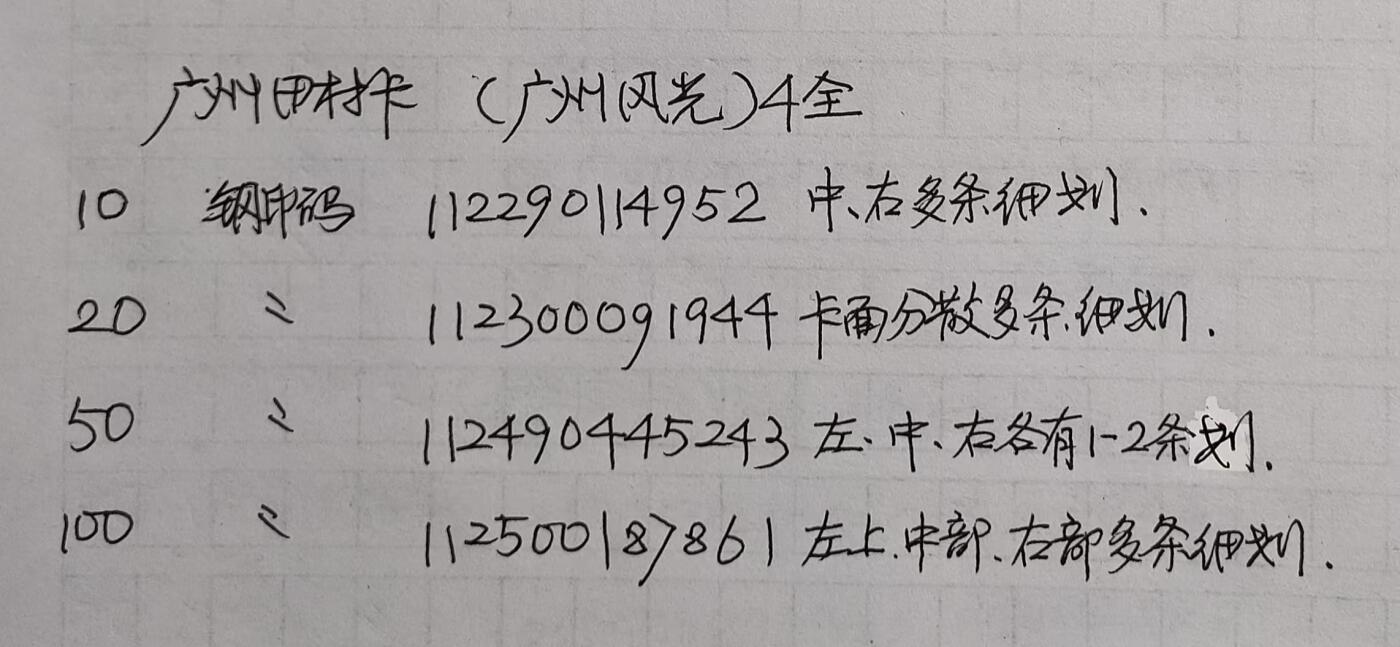 广州田村卡 (广州风光)4全
10 钢印码 112290114952 中、右多条细划.
20 〃 112300091944 卡面分散多条.细划.
50 〃 112490445243 左、中、右各有1-2条划.
100 〃 112500187861 左上.中部.右部多条细划.